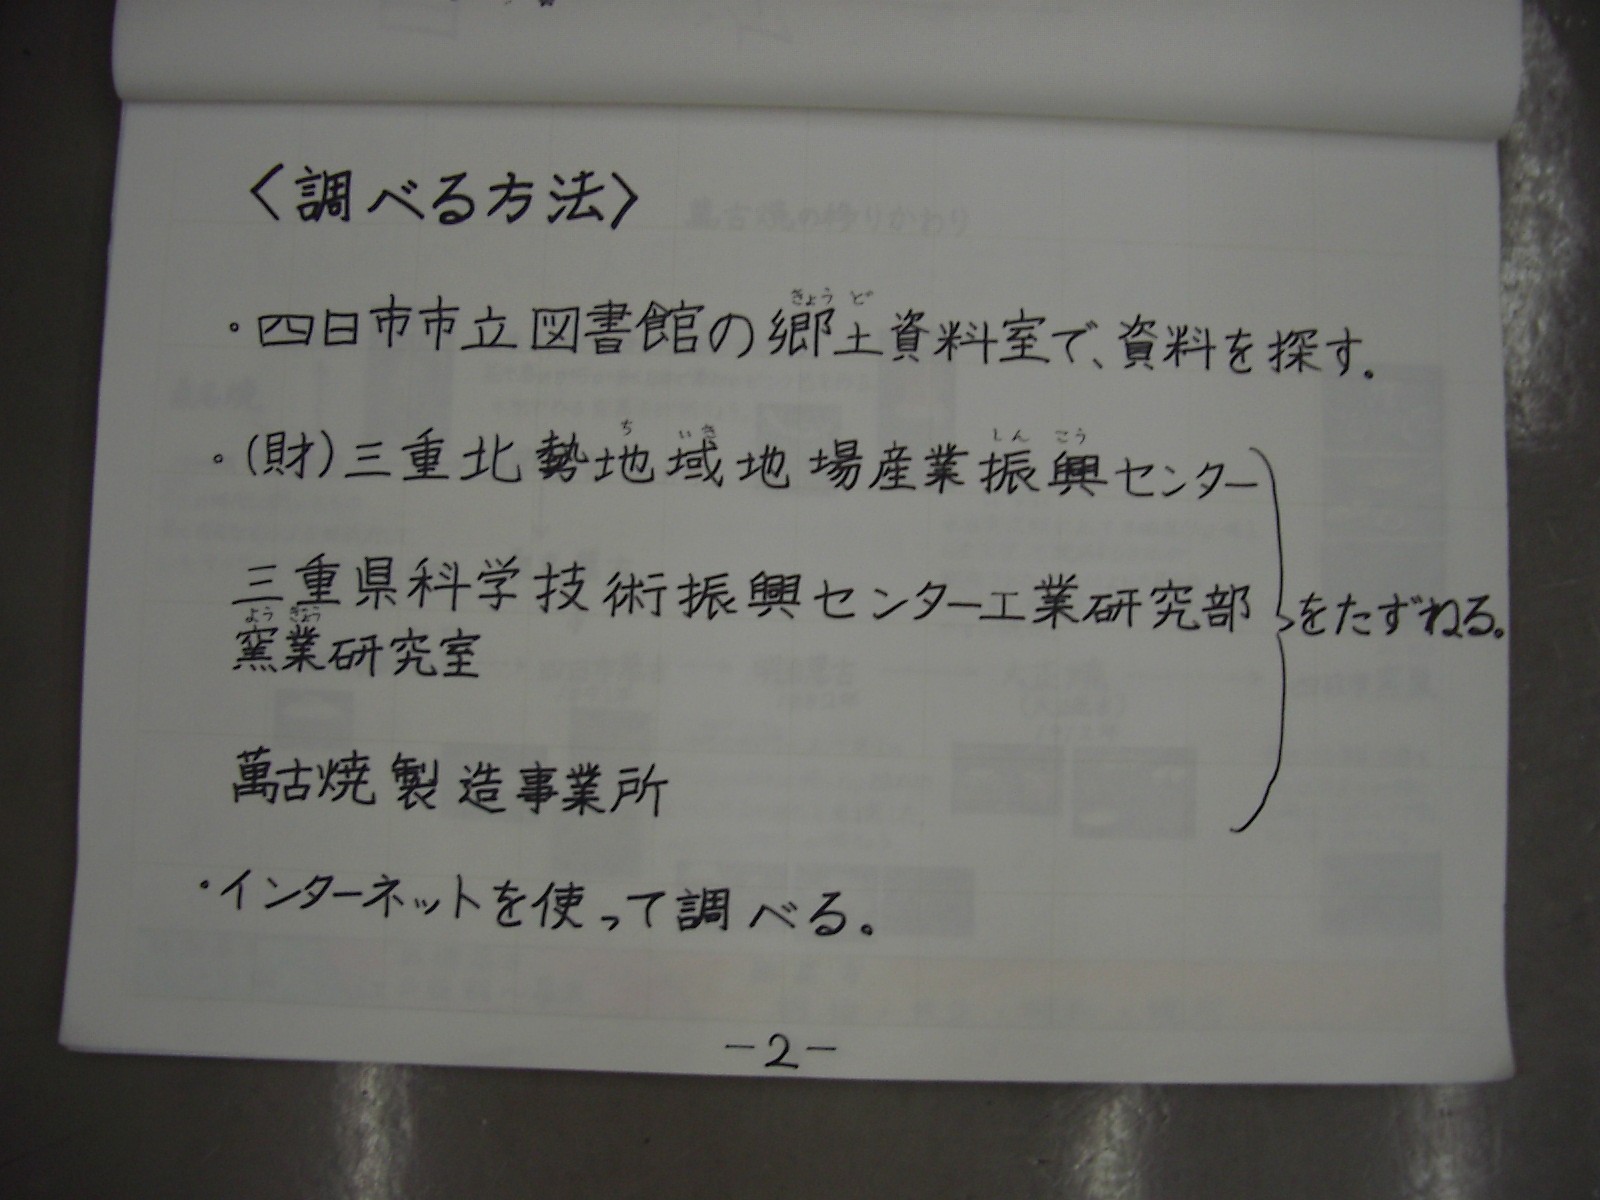 〈調べる方法〉
・四日市市立図書館の郷土資料室で、資料を探す。
きょうど
・(財)三重北勢地域地場産業振興センター
ちいき しんこう
三重県科学技術振興センター工業研究部
ようぎょう
窯業研究室
をたずねる。
萬古焼製造事業所
・インターネットを使って調べる。
-2-